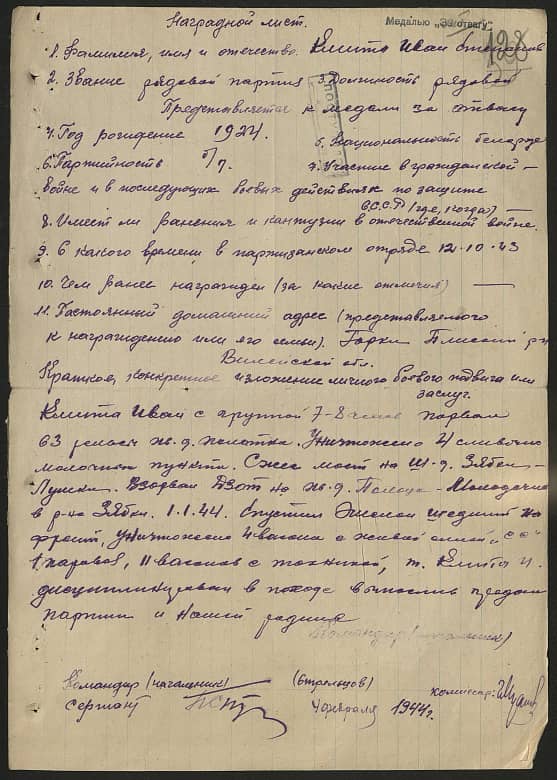 Наградной лист.
Медалью „За отвагу"
128
1. Фамилия, имя и отчество. Клита Иван
2. Звание рядовой партиз 3. Должность рядовой
Представляется к медали за отвагу
4. Год рождение 1924. 5. Национальность белорус
6. Партийность б/п. 7. Участие в гражданской —
войне и в последующих боевых действиях по защите
СССР (где, когда) —
8. Имеет ли ранения и контузии в отечественной войне.
9. С какого времени в партизанском отряде 12.10.43
10. Чем ранее награжден (за какие отличия) —
11. Постоянный домашний адрес (представляемого
к награждению или его семьи). Горки
Вилейской обл.
Краткое, конкретное изложение личного боевого подвига или
заслуг.
Клита Иван с группой 7-8 человек порвал
63 рельсы ж.д. полотна. Уничтожено 4 сливочно
молочных пункта. Сжег мост на ш.д. Зябки-
Лушки. Взорвал ДЗОТ на ж.д. Полоцк-Молодечно
в р-не Зябки. 1.1.44. спустил эшелон шедший на
фронт, уничтожено 4 вагона с живой силой,
1 паровоз, 11 вагонов с техникой, т. Клита И.
дисциплинирован в походе вынослив предан
партии и нашей родине
Командир (начальник)
Командир (начальник) (Стрельцов) комиссар:
сержант 4 февраля 1944 г.